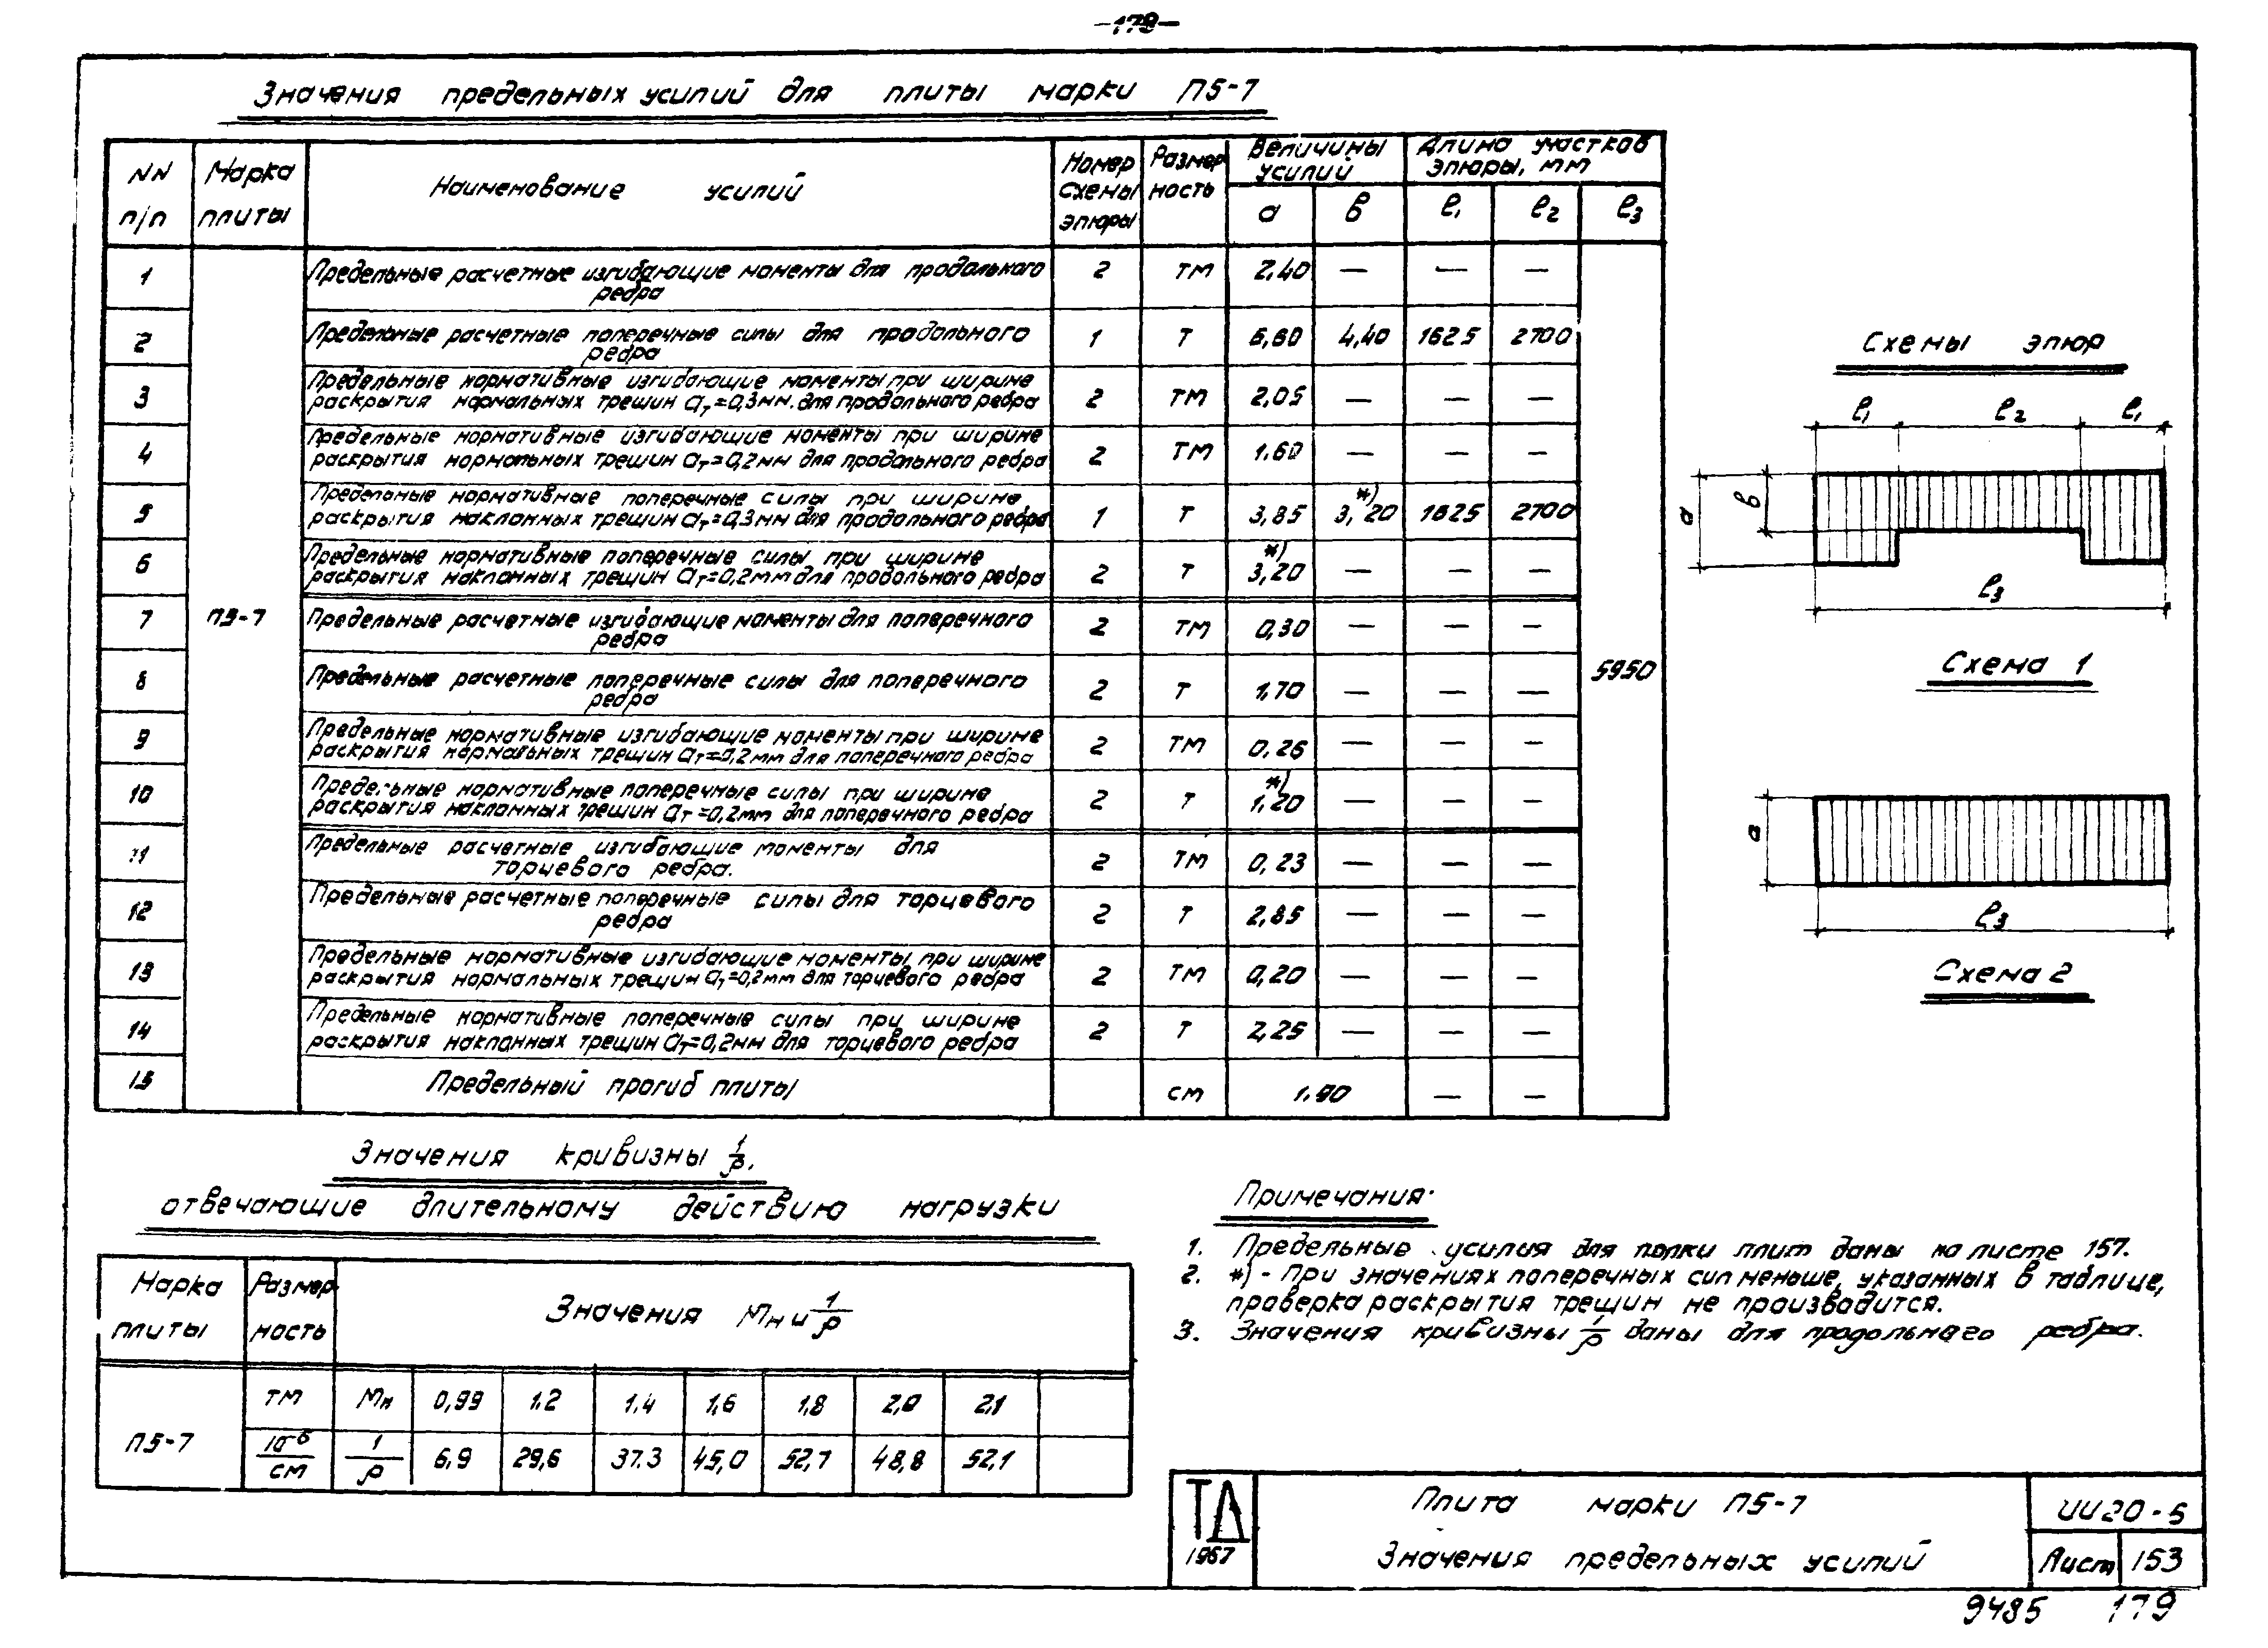 -178-
Значения предельных усилий для плиты марки П5-7
NN п/п | Марка плиты | Наименование усилий | Номер схемы эпюры | Размерность | Величины усилий | Длина участков эпюры, мм
а | в | ℓ1 | ℓ2 | ℓ3
1 | Предельные расчетные изгибающие моменты для продольного ребра | 2 | тм | 2,40 | — | — | —
2 | Предельные расчетные поперечные силы для продольного ребра | 1 | т | 6,60 | 4,40 | 1625 | 2700
3 | Предельные нормативные изгибающие моменты при ширине раскрытия нормальных трещин aт=0,3мм. для продольного ребра | 2 | тм | 2,05 | — | — | —
4 | Предельные нормативные изгибающие моменты при ширине раскрытия нормальных трещин aт=0,2мм для продольного ребра | 2 | тм | 1.60 | — | — | —
5 | Предельные нормативные поперечные силы при ширине раскрытия наклонных трещин aт=0,3мм для продольного ребра | 1 | т | 3,85 | *) 3,20 | 1625 | 2700
6 | Предельные нормативные поперечные силы при ширине раскрытия наклонных трещин aт=0,2мм для продольного ребра | 2 | т | *) 3,20 | — | — | —
7 | П5-7 | Предельные расчетные изгибающие моменты для поперечного ребра | 2 | тм | 0,30 | — | — | —
8 | Предельные расчетные поперечные силы для поперечного ребра | 2 | т | 1,70 | — | — | — | 5950
9 | Предельные нормативные изгибающие моменты при ширине раскрытия нормальных трещин aт=0,2мм для поперечного ребра | 2 | тм | 0,26 | — | — | —
10 | Предельные нормативные поперечные силы при ширине раскрытия наклонных трещин aт=0,2мм для поперечного ребра | 2 | т | *) 1,20 | — | — | —
11 | Предельные расчетные изгибающие моменты для торцевого ребра. | 2 | тм | 0,23 | — | — | —
12 | Предельные расчетные поперечные силы для торцевого ребра | 2 | т | 2,85 | — | — | —
13 | Предельные нормативные изгибающие моменты при ширине раскрытия нормальных трещин aт=0,2мм для торцевого ребра | 2 | тм | 0,20 | — | — | —
14 | Предельные нормативные поперечные силы при ширине раскрытия наклонных трещин aт=0,2мм для торцевого ребра | 2 | т | 2,25 | — | — | —
15 | Предельный прогиб плиты | см | 1.90 | — | —
Схемы эпюр
ℓ1 ℓ2 ℓ1
а в
ℓ3
Схема 1
а
ℓ3
Схема 2
Значения кривизны 1/ρ,
отвечающие длительному действию нагрузки
Марка плиты | Размерность | Значения Мн и 1/ρ
П5-7 | тм | Мн | 0,99 | 1.2 | 1.4 | 1,6 | 1,8 | 2,0 | 2,1
10⁻⁶/см | 1/ρ | 6,9 | 29,6 | 37.3 | 45,0 | 52,7 | 48,8 | 52,1
Примечания:
1. Предельные усилия для полки плит даны на листе 157.
2. *) - При значениях поперечных сил меньше, указанных в таблице,
проверка раскрытия трещин не производится.
3. Значения кривизны 1/ρ даны для продольного ребра.
ТД
1967
Плита марки П5-7
Значения предельных усилий
ИИ20-5
Лист 153
9485 179